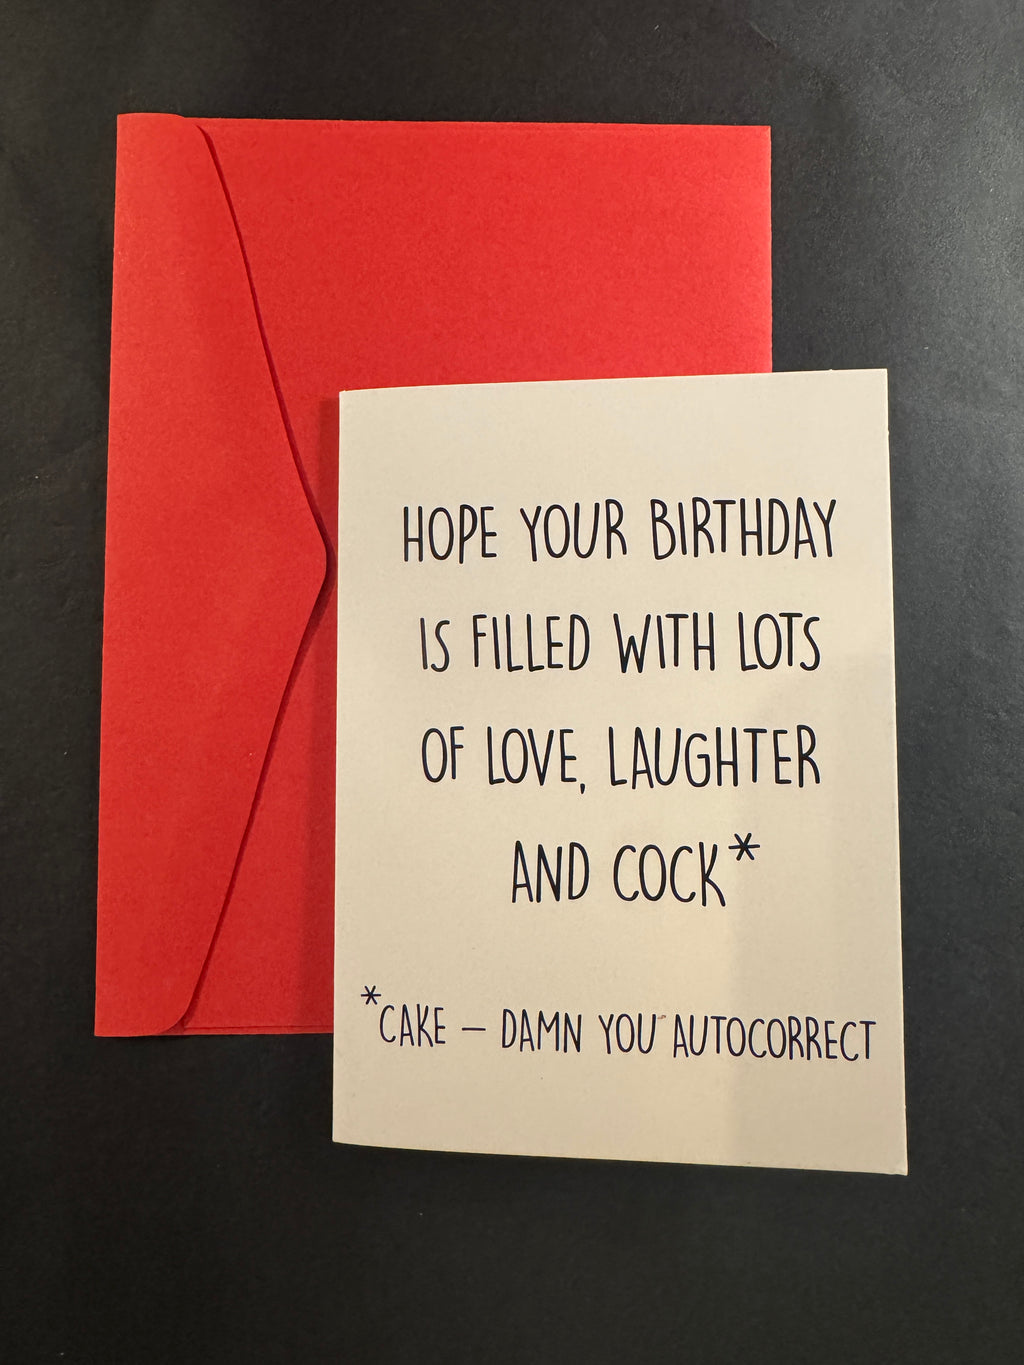 HOPE YOUR BIRTHDAY
IS FILLED WITH LOTS
OF LOVE, LAUGHTER
AND COCK*
*CAKE – DAMN YOU AUTOCORRECT